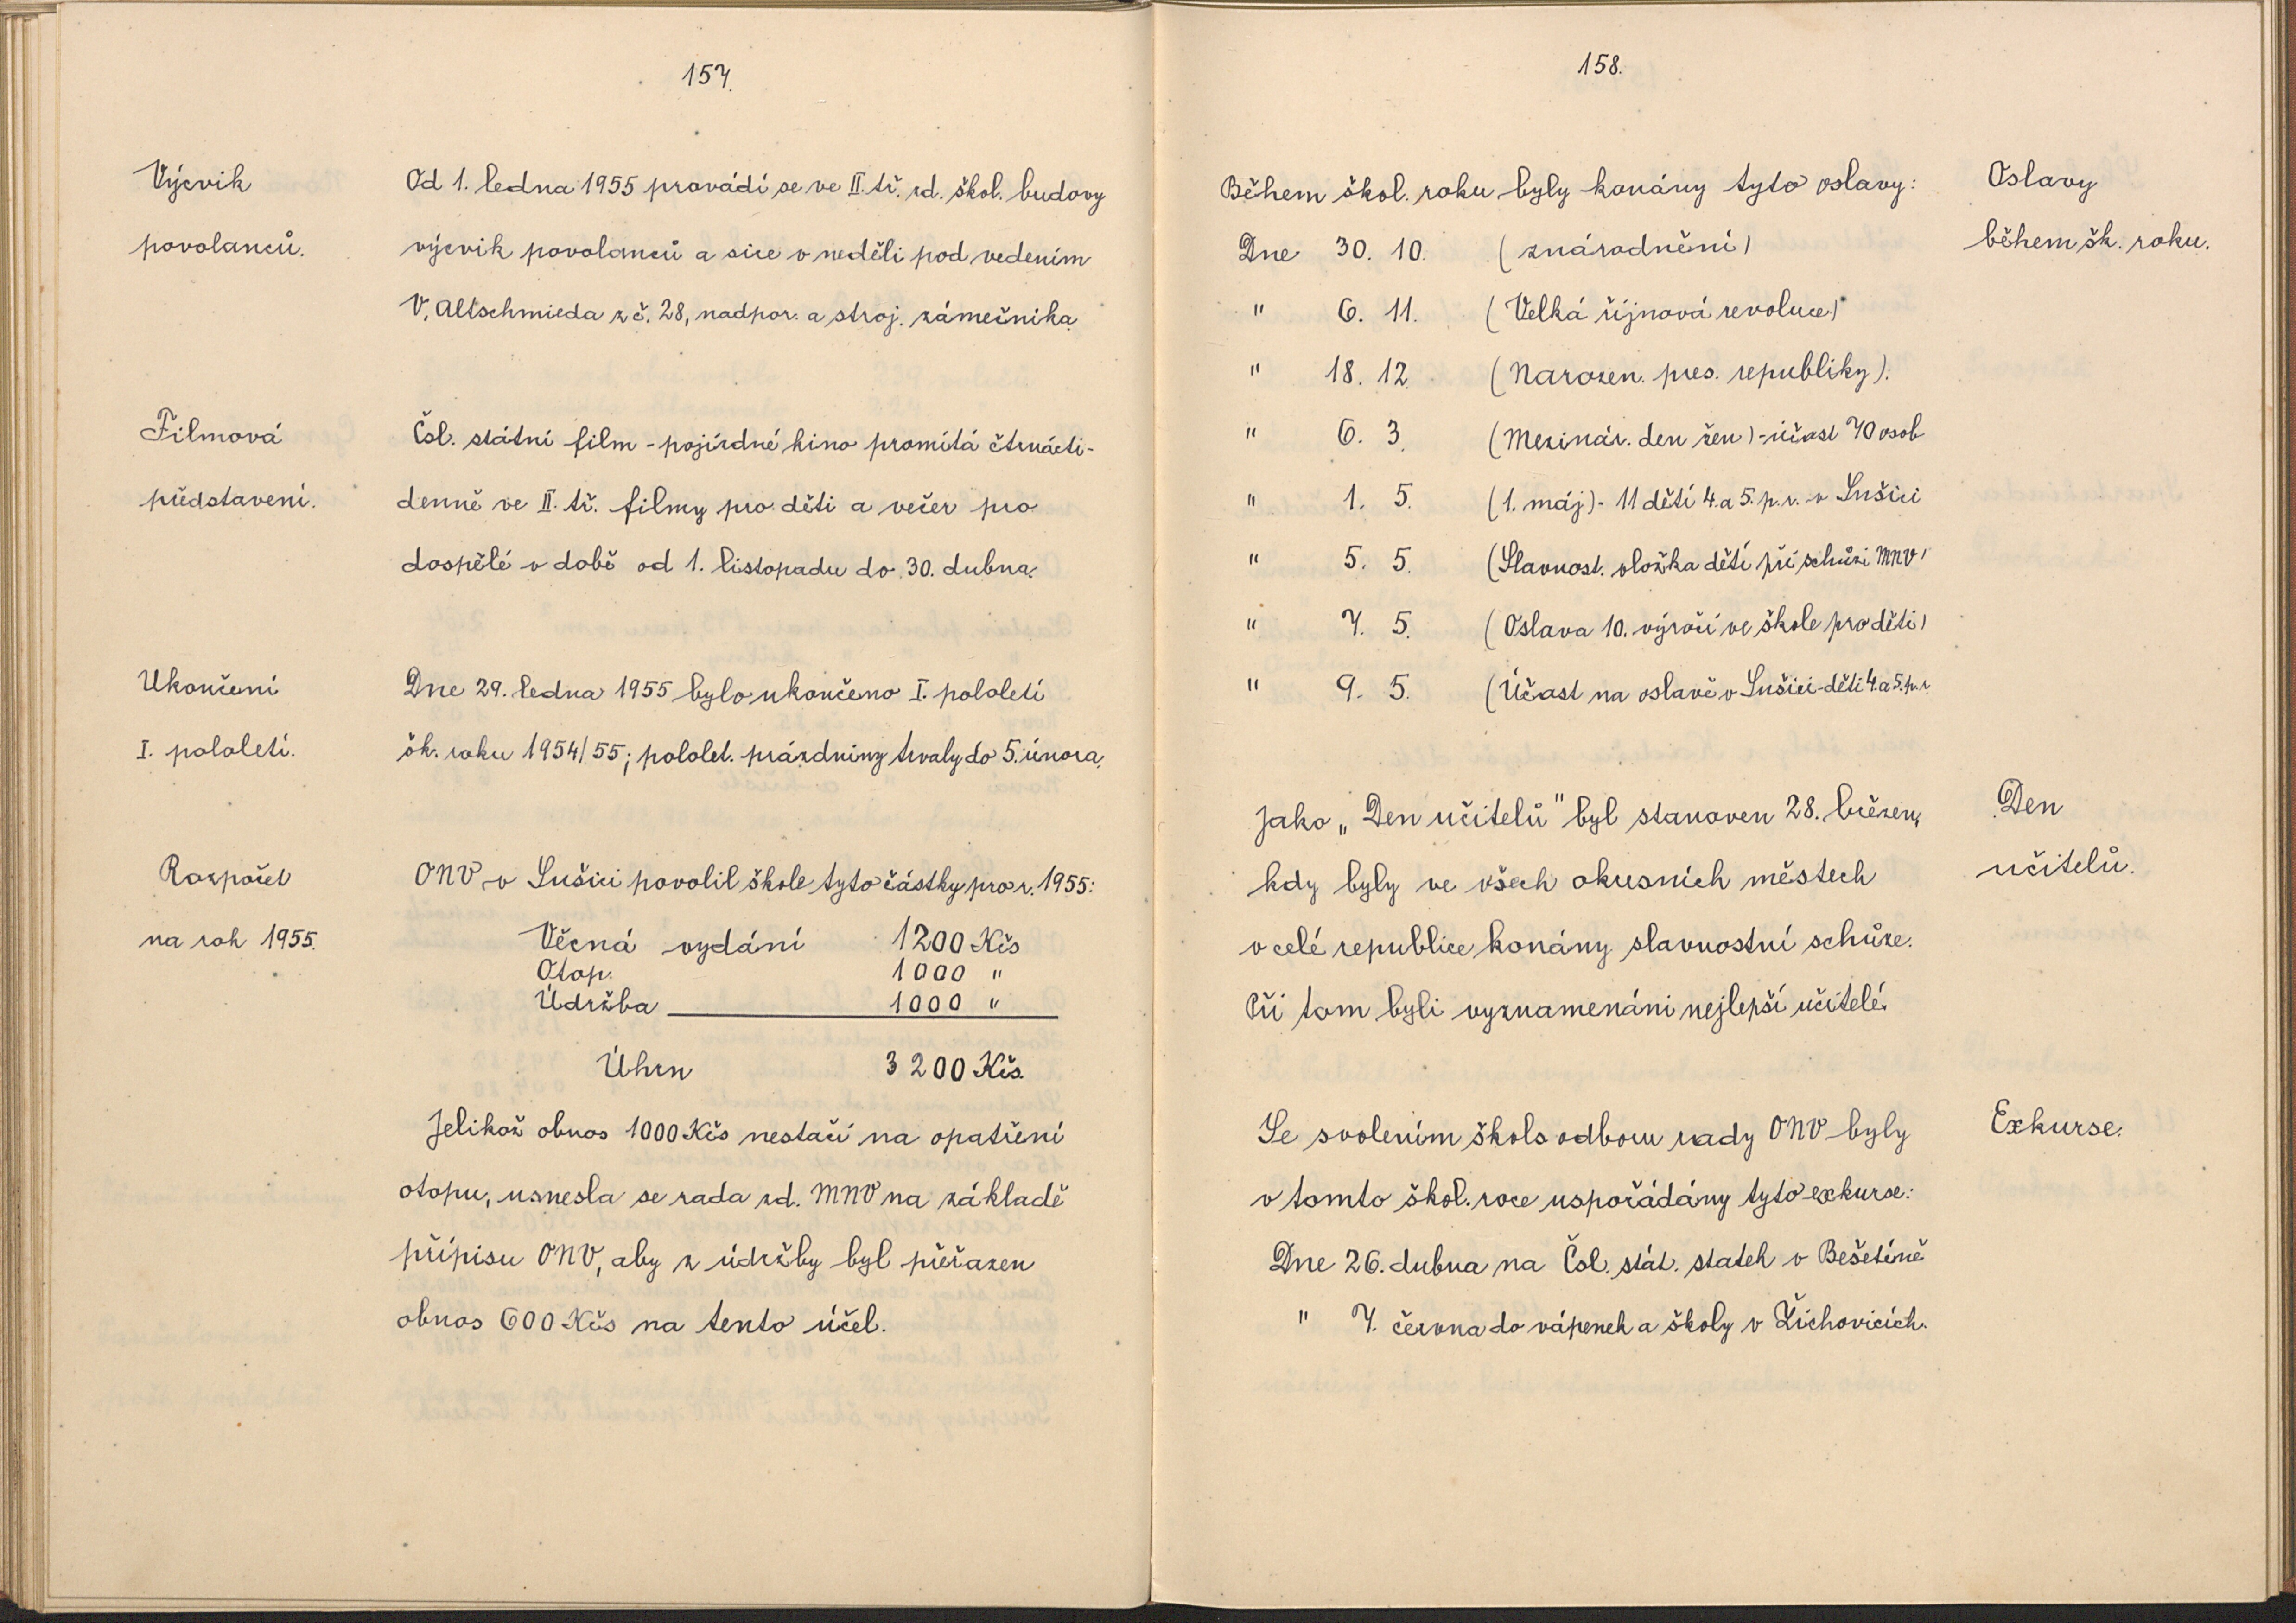 157.
Výcvik
povolanců.
Od 1. ledna 1955 provádí se ve II. tř. zd. škol. budovy
výcvik povolanců a sice v neděli pod vedením
V. Altschmieda z č. 28, nadpor. a stroj. zámečníka.
Filmová
představení.
Čsl. státní film - pojízdné kino promítá čtrnácti-
denně ve II. tř. filmy pro děti a večer pro
dospělé v době od 1. listopadu do 30. dubna.
Ukončení
I. pololetí.
Dne 29. ledna 1955 bylo ukončeno I. pololetí
šk. roku 1954/55; pololet. prázdniny trvaly do 5. února.
Rozpočet
na rok 1955.
ONV v Sušici povolil škole tyto částky pro r. 1955:
Věcná vydání 1200 Kčs
Otop. 1000 "
Údržba 1000 "
Úhrn 3200 Kčs.
Jelikož obnos 1000 Kčs nestačí na opatření
otopu, usnesla se rada zd. MNV na základě
přípisu ONV, aby z údržby byl přeřazen
obnos 600 Kčs na tento účel.
158.
Oslavy
během šk. roku.
Během škol. roku byly konány tyto oslavy:
Dne 30. 10. (znárodnění)
" 6. 11. (Velká říjnová revoluce)
" 18. 12. (Narozen. pres. republiky).
" 6. 3. (Mezinár. den žen) - účast 70 osob
" 1. 5. (1. máj) - 11 dětí 4. a 5. p. r. v Sušici
" 5. 5. (Slavnost. vložka dětí při schůzi MNV)
" 7. 5. (Oslava 10. výročí ve škole pro děti)
" 9. 5. (Účast na oslavě v Sušici - děti 4. a 5. p. r.
Den
učitelů.
Jako „Den učitelů" byl stanoven 28. březen,
kdy byly ve všech okresních městech
v celé republice konány slavnostní schůze.
Při tom byli vyznamenáni nejlepší učitelé.
Exkurse.
Se svolením škols. odboru rady ONV byly
v tomto škol. roce uspořádány tyto exkurse:
Dne 26. dubna na Čsl. stát. statek v Bešetíně
" 7. června do vápenek a školy v Žichovicích.